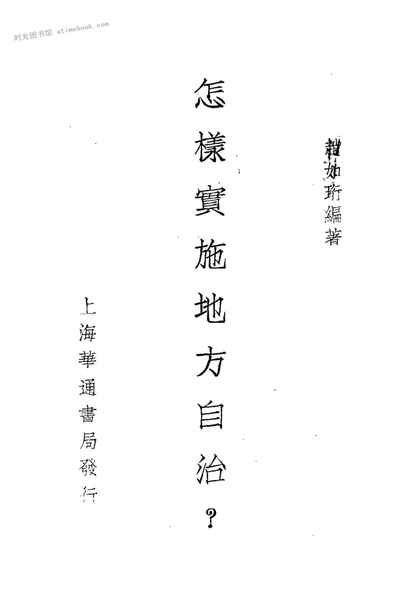 时光图书馆 atimebook.com
趙如珩編著
怎樣實施地方自治？
上海華通書局發行